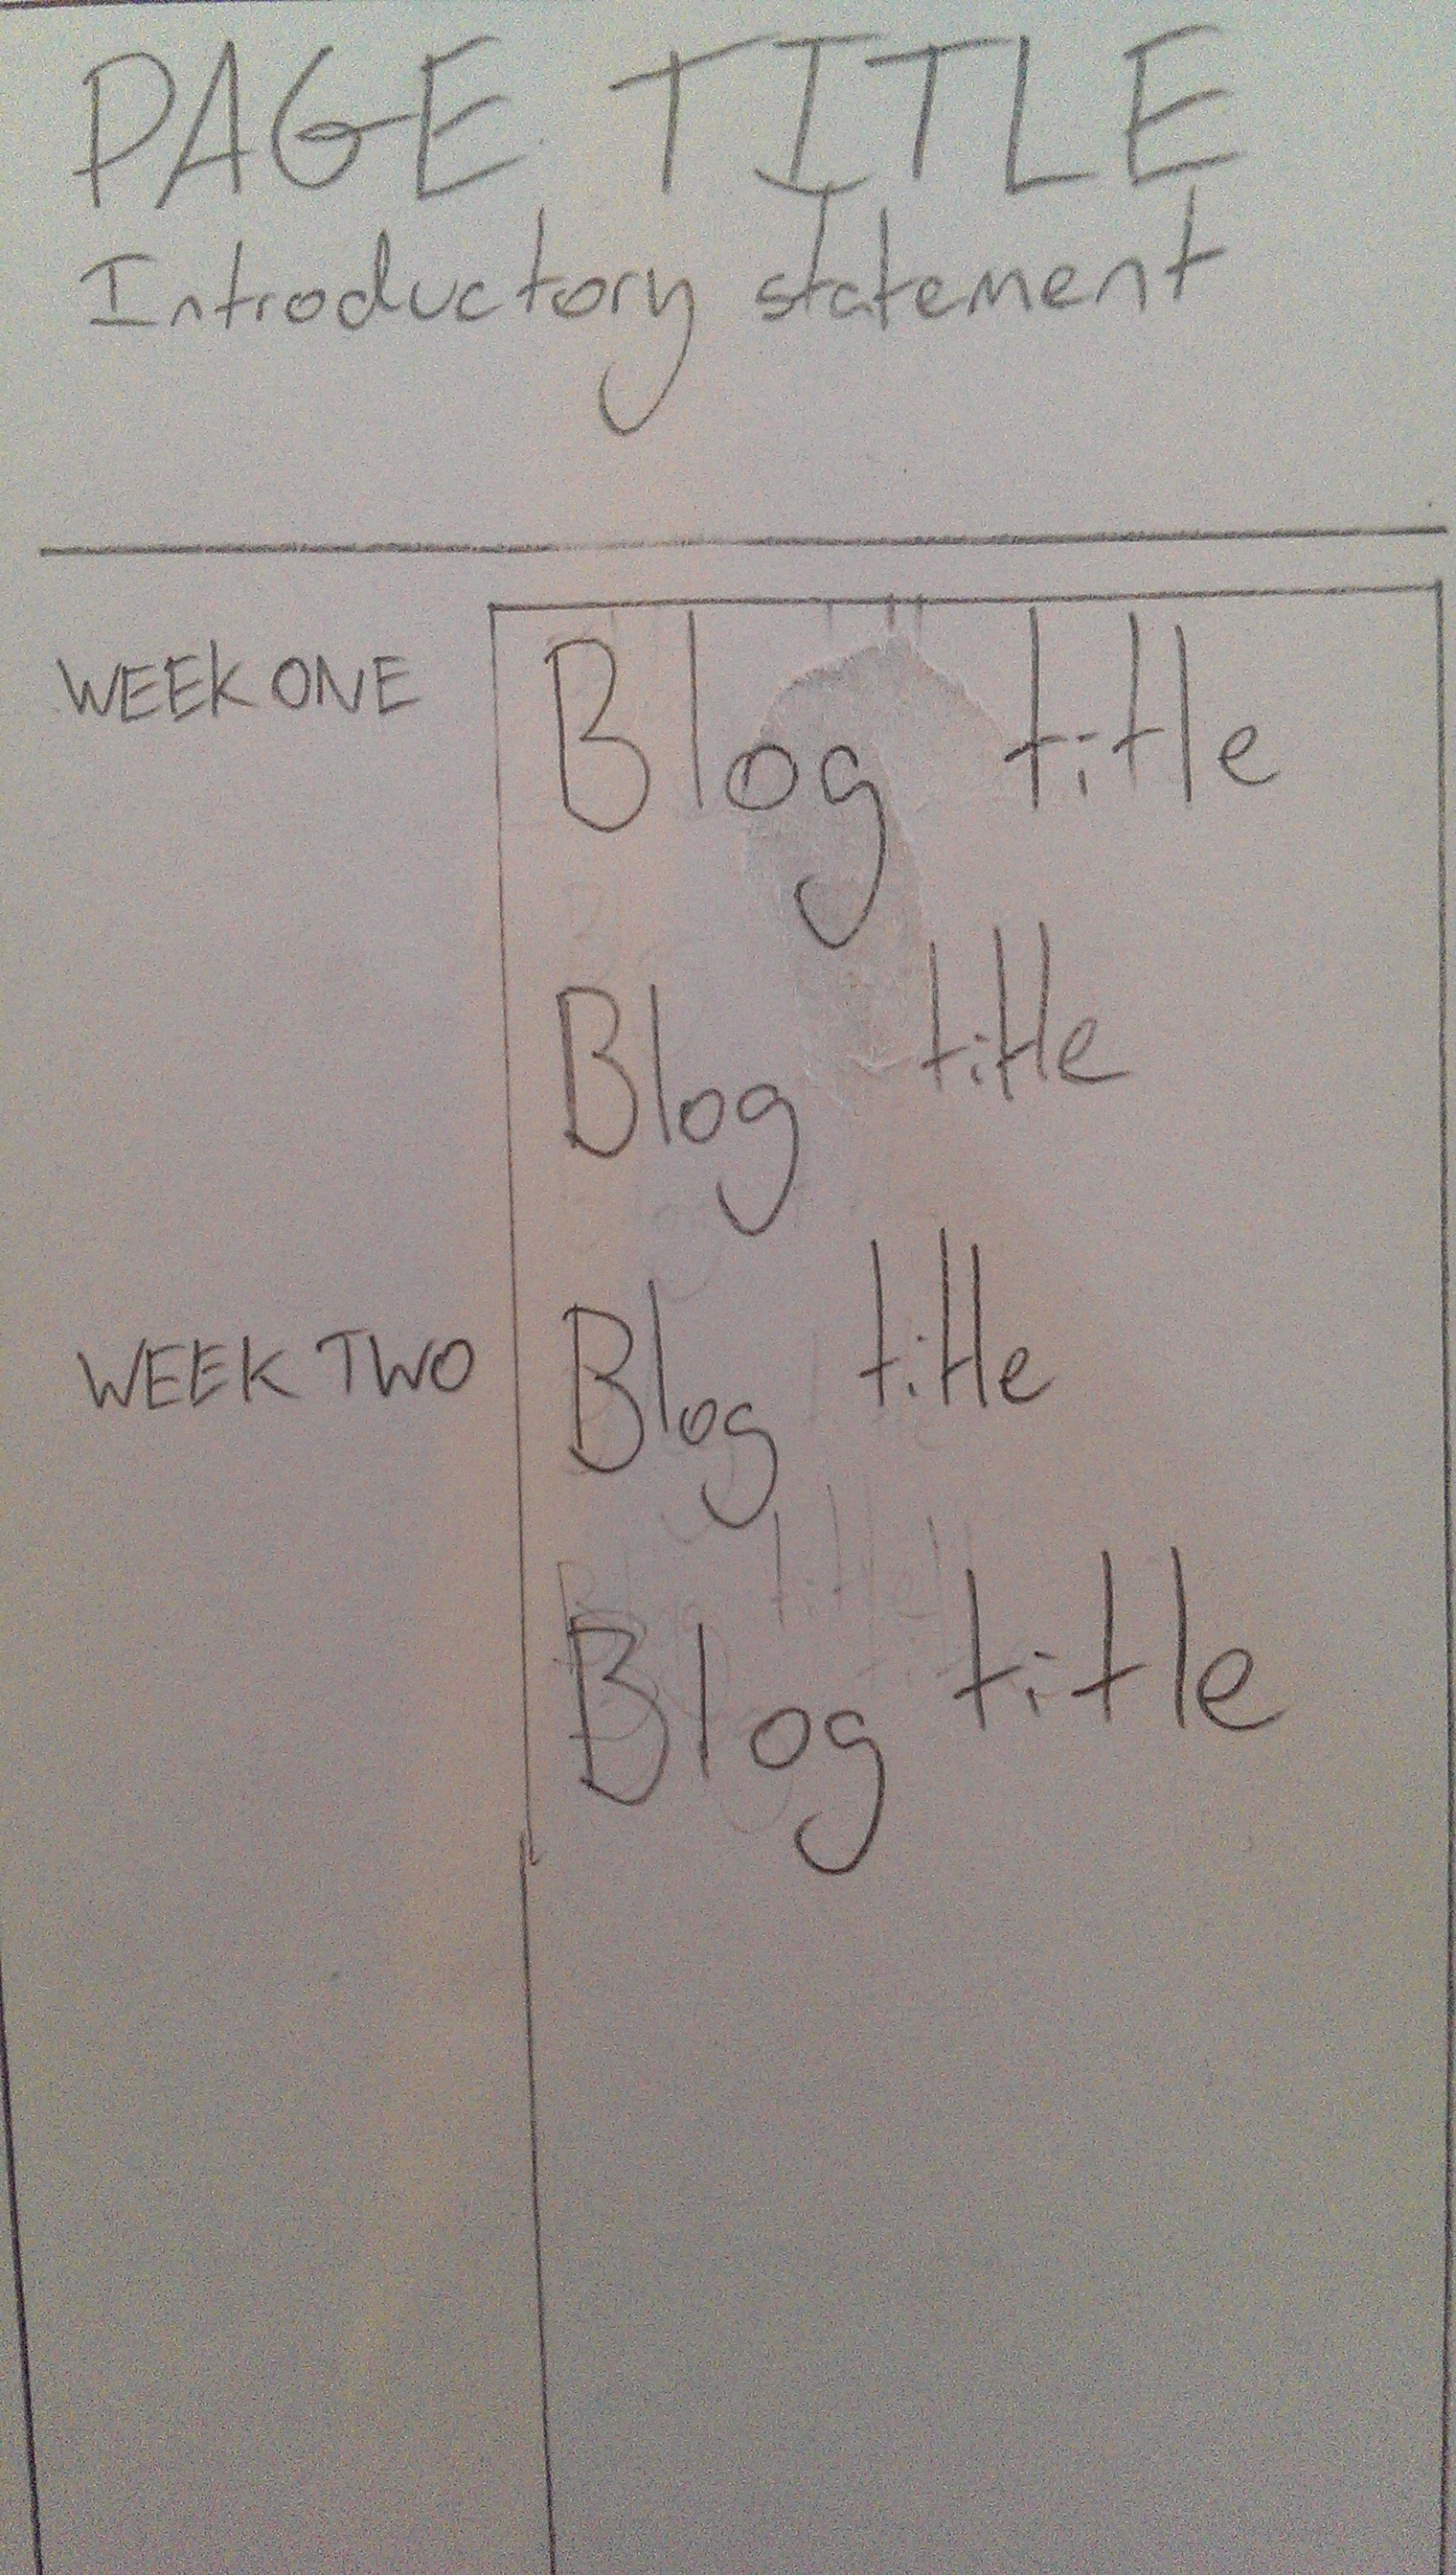 PAGE TITLE
Introductory statement
WEEK ONE
Blog title
Blog title
WEEK TWO
Blog title
Blog title